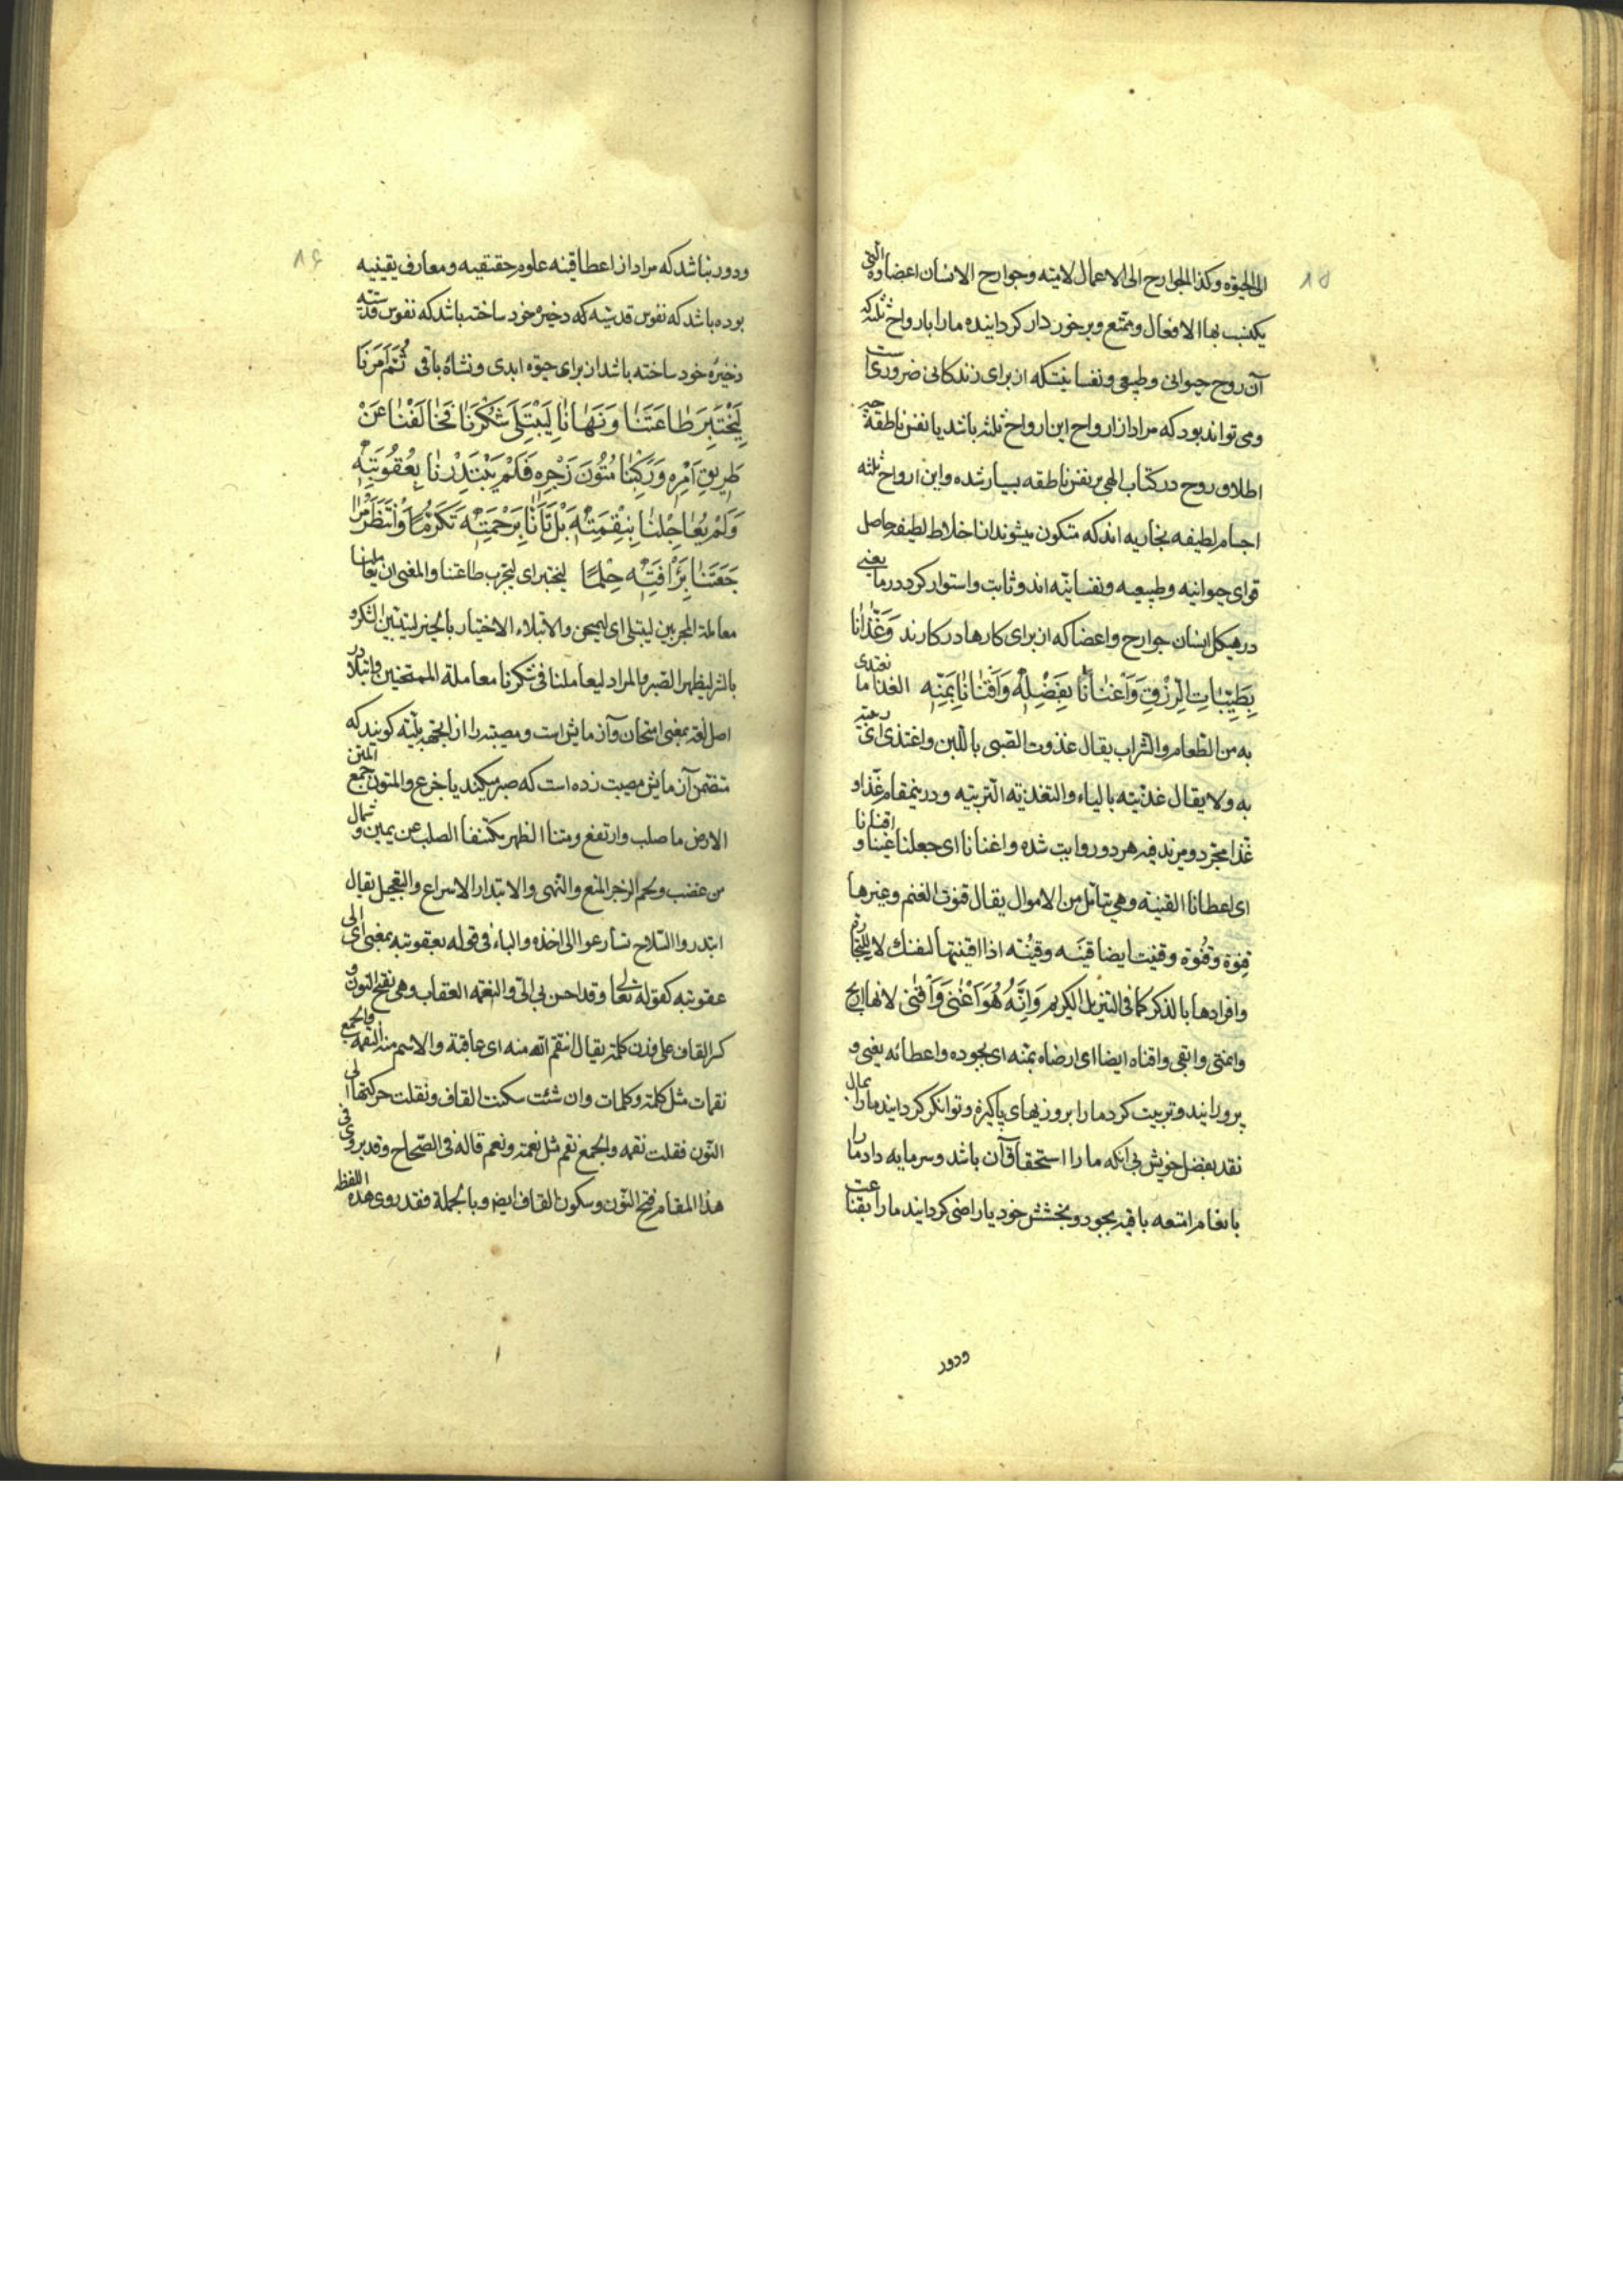 ۱۵
الی الحیوة وکذا الجوارح الی الاعمال لامیته وجوارح الانسان اعضاوه التی
یکتسب بها الافعال ومتمتع وبرخوردار کردانیده مارا بارواح ثلثه که
آن روح حیوانی وطبیعی ونفسانیست که از برای زندکانی ضروریست
ومی تواند بود که مراد از ارواح این ارواح ثلثه باشد یا نفس ناطقه چه
اطلاق روح در کتاب الهی بر نفس ناطقه بسیار شده واین ارواح ثلثه
اجسام لطیفه بخاریه اند که متکون میشوند از اخلاط لطیفه حاصل
قوای حیوانیه وطبیعیه ونفسانیه اند وثابت واستوار کرد در ما یعنی
در هیکل انسان جوارح واعضا که از برای کارها در کارند وَغَذّانا
بِطَیِّباتِ الرِّزْقِ وَاَغْنانا بِفَضْلِهِ وَاَقْنانا بِمَنِّهِ الغذا ما نغتدی
به من الطعام والشراب یقال غذوت الصبی باللبن واغتذی ای ربیته
به ولا یقال غذیته بالیاء والتغذیه التربیته ودرینمقام غذا و
غذا مجرد ومزید فیه هر دو روایت شده واغنانا ای جعلنا غنیا و اقنانا
ای اعطانا القنیه وهی یتاثل من الاموال یقال قنوت الغنم وغیرها
قِنوة وقُنوة وقنیت ایضا قنیه وقُنیه اذا اقنیتها لنفسک لا للتجارة
وافرادها بالذکر کما فی التنزیل الکریم وَاِنَّهُ هُوَ اَغْنی وَاَقْنی لانها اربح
وانمی وابقی واقناه ایضا ای ارضاه بمنه ای بجوده واعطائه یعنی و
پرورانید وتربیت کرد مارا بروزیهای پاکیزه وتوانکر کردانید مارا بمال
نقد بفضل خویش بی آنکه ما را استحقاق آن باشد وسرمایه داد ما را
بانعام امتعه باقیه بجود وبخشش خود یا راضی کردانید مارا بقناعت
ودور
۱۶
ودور نباشد که مراد از اعطا قنیه علوم حقیقیه ومعارف یقینیه
بوده باشد که نفوس قدسیه که ذخیره خود ساخته باشد که نفوس قدسیه
ذخیره خود ساخته باشد از برای حیوه ابدی ونشاه باقی ثُمَّ اَمَرَنا
لِیَخْتَبِرَ طاعَتَنا وَنَهانا لِیَبْتَلِیَ شُکْرَنا فَخالَفْنا عَنْ
طَریقِ اَمْرِهِ وَرَکِبْنا مُتُونَ زَجْرِهِ فَلَمْ یَبْتَدِرْنا بِعُقُوبَتِهِ
وَلَمْ یُعاجِلْنا بِنِقْمَتِهِ بَلْ تَاَنّانا بِرَحْمَتِهِ تَکَرُّماً وَانْتَظَرَ مُرا
جَعَتَنا بِرَاْفَتِهِ حِلْماً لیختبر ای لیجرب طاعتنا والمغنی ان یعاملنا
معاملة المجربین لیبتلی ای لیمتحن والابتلاء الاختبار بالخیر لیتبین الشکر و
بالشر لیظهر الصبر والمراد لیعاملنا فی شکرنا معاملة الممتحنین وابتلا در
اصل لغه بمعنی امتحان وآزمایش است ومصیبت را از آنجهه بلیه کویند که
متضمن آزمایش مصیبت زده است که صبر میکند یا جزع والمتون جمع المتن
الارض ما صلب وارتفع ومتنا الظهر مکتنفا الصلب عن یمین و شمال
من عضب ولحم الزجر المنع والنهی والابتدار الاسراع والتعجیل یقال
ابتدروا السلاح تسارعوا الی اخذه والباء فی قوله بعقوبته بمعنی الی ای
عقوبته کقوله تعالی وقد احسن بی ای الی والنقمه العقاب وهی بفتح النون و
کسر القاف علی وزن کلمة یقال انتقم الله منه ای عاقبة والاسم منه النقمه والجمع
نقمات مثل کلمة وکلمات وان شئت سکنت القاف ونقلت حرکتها الی
النون فقلت نقمه والجمع نقم مثل نعمة ونعم قاله فی الصحاح وقد یروی فی
هذا المقام فتح النون وسکون القاف ایضا وبالجملة فقد روی هذه اللفظه